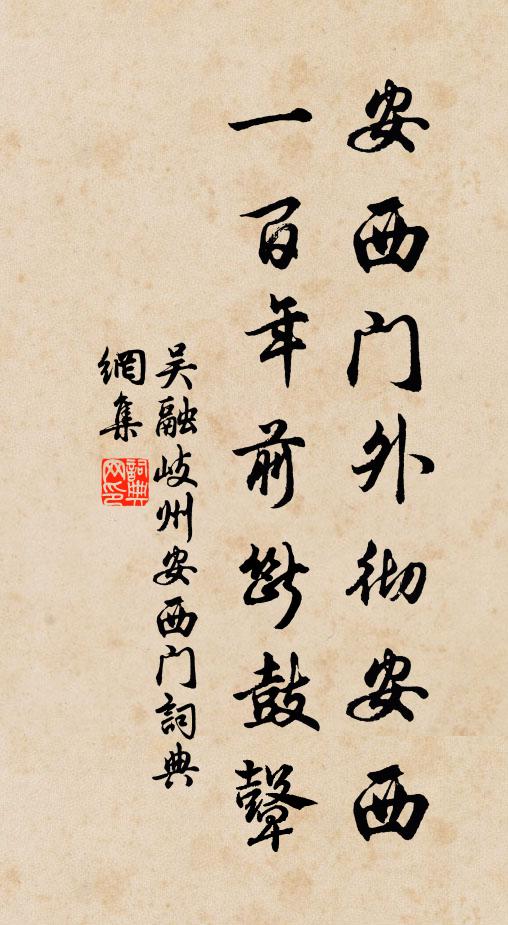 安西门外彻安西
一百年前断鼓鼙
吴融岐州安西门詞典
網集
詞典
网印